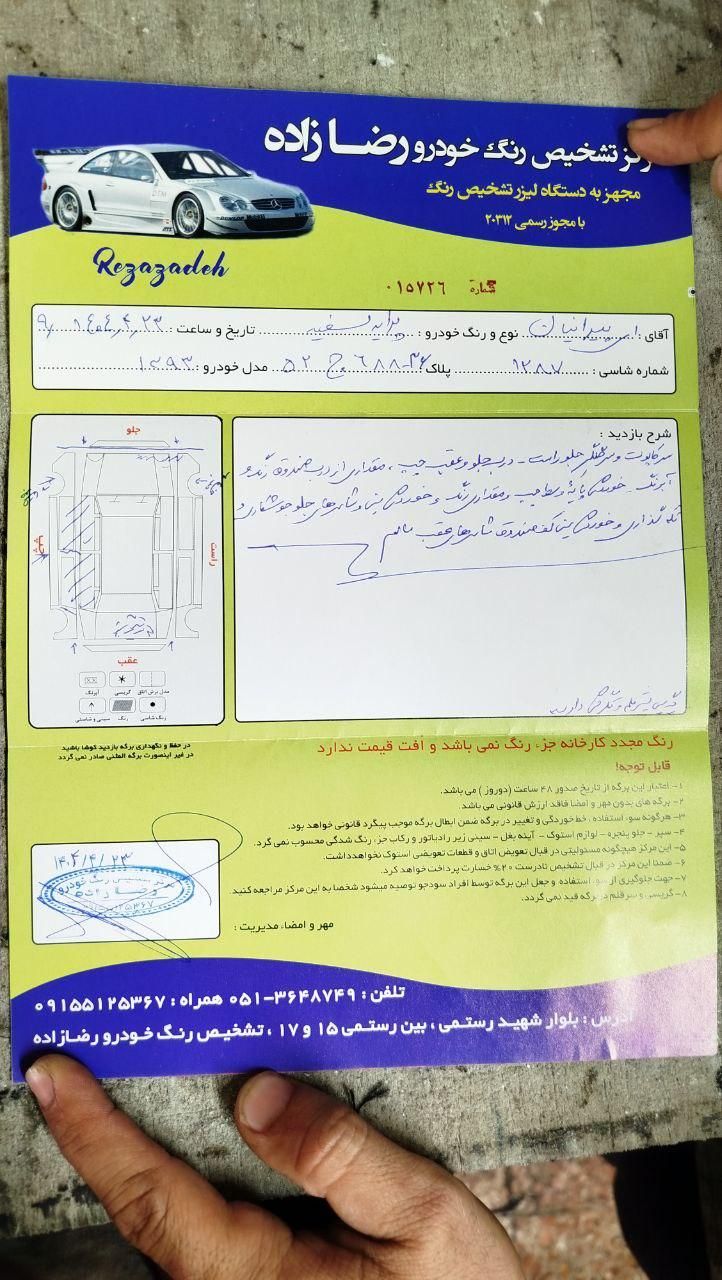 مرکز تشخیص رنگ خودرو رضازاده
مجهز به دستگاه لیزر تشخیص رنگ
با مجوز رسمی ۲۰۳۱۲
Rezazadeh
شماره ۰۱۵۷۲۶
آقای : نوع و رنگ خودرو : پراید سفید تاریخ و ساعت : ۱۴۰۴,۴,۲۳
شماره شاسی : ۱۲۸۷ پلاک ۵۲ ج ۶۸۸-۳۶ مدل خودرو : ۱۳۹۳
شرح بازدید :
سرکاپوت و سرگلگیر جلو راست - درب جلو و عقب چپ ، مقداری از درب صندوق رنگ و
آبرنگ - خوردگی پایه وسط چپ و مقداری رنگ و خوردگی سینی و شاسی‌های جلو جوشکاری و
و خوردگی سینی کف صندوق شاسی‌های عقب سالم
جلو
چپ
راست
عقب
مدل برش اتاق
گریسی
آبرنگ
رنگ شاسی
رنگ
سینی و شاسی
در حفظ و نگهداری برگه بازدید کوشا باشید
در غیر اینصورت برگه المثنی صادر نمی گردد
رنگ مجدد کارخانه جزء رنگ نمی باشد و اُفت قیمت ندارد
قابل توجه!
۱- اعتبار این برگه از تاریخ صدور ۴۸ ساعت (دو روز) می باشد.
۲- برگه های بدون مهر و امضا فاقد ارزش قانونی می باشد.
۳- هرگونه سوء استفاده ، خط خوردگی و تغییر در برگه ضمن ابطال برگه موجب پیگرد قانونی خواهد بود.
۴- سپر - جلو پنجره - لوازم استوک - آینه بغل - سینی زیر رادیاتور و رکاب جزء رنگ شدگی محسوب نمی گرد.
۵- این مرکز هیچگونه مسئولیتی در قبال تعویض اتاق و قطعات تعویضی استوک نخواهد داشت.
۶- ضمنا این مرکز در قبال تشخیص نادرست ۲۰% خسارت پرداخت خواهد کرد.
۷- جهت جلوگیری از سوء استفاده و جعل این برگه توسط افراد سودجو توصیه میشود شخصا به این مرکز مراجعه کنید.
۸- گریسی و سرقلم در برگه قید نمی گردد.
مهر و امضاء مدیریت :
۱۴۰۴/۴/۲۳
تلفن : ۳۶۴۸۷۴۹-۰۵۱ همراه : ۰۹۱۵۵۱۲۵۳۶۷
آدرس : بلوار شهید رستمی ، بین رستمی ۱۵ و ۱۷ ، تشخیص رنگ خودرو رضازاده